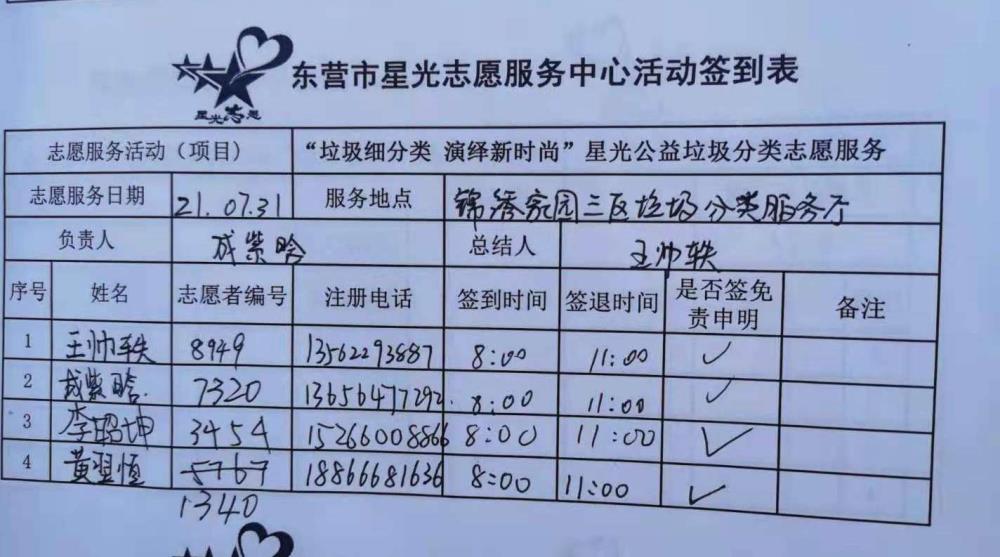 星光志愿
东营市星光志愿服务中心活动签到表
志愿服务活动（项目） “垃圾细分类 演绎新时尚”星光公益垃圾分类志愿服务
志愿服务日期 21.07.31 服务地点 锦绣家园三区垃圾分类服务厅
负责人 成紫晗 总结人 王帅轶
序号 姓名 志愿者编号 注册电话 签到时间 签退时间 是否签免责申明 备注
1 王帅轶 8949 13562293887 8:00 11:00 ✓
2 成紫晗. 7320 13656477292. 8:00 11:00 ✓
3 李昭坤 3454 15266008866 8:00 11:00 ✓
4 黄翌恒 5767 18866681636 8:00 11:00 ✓
1340